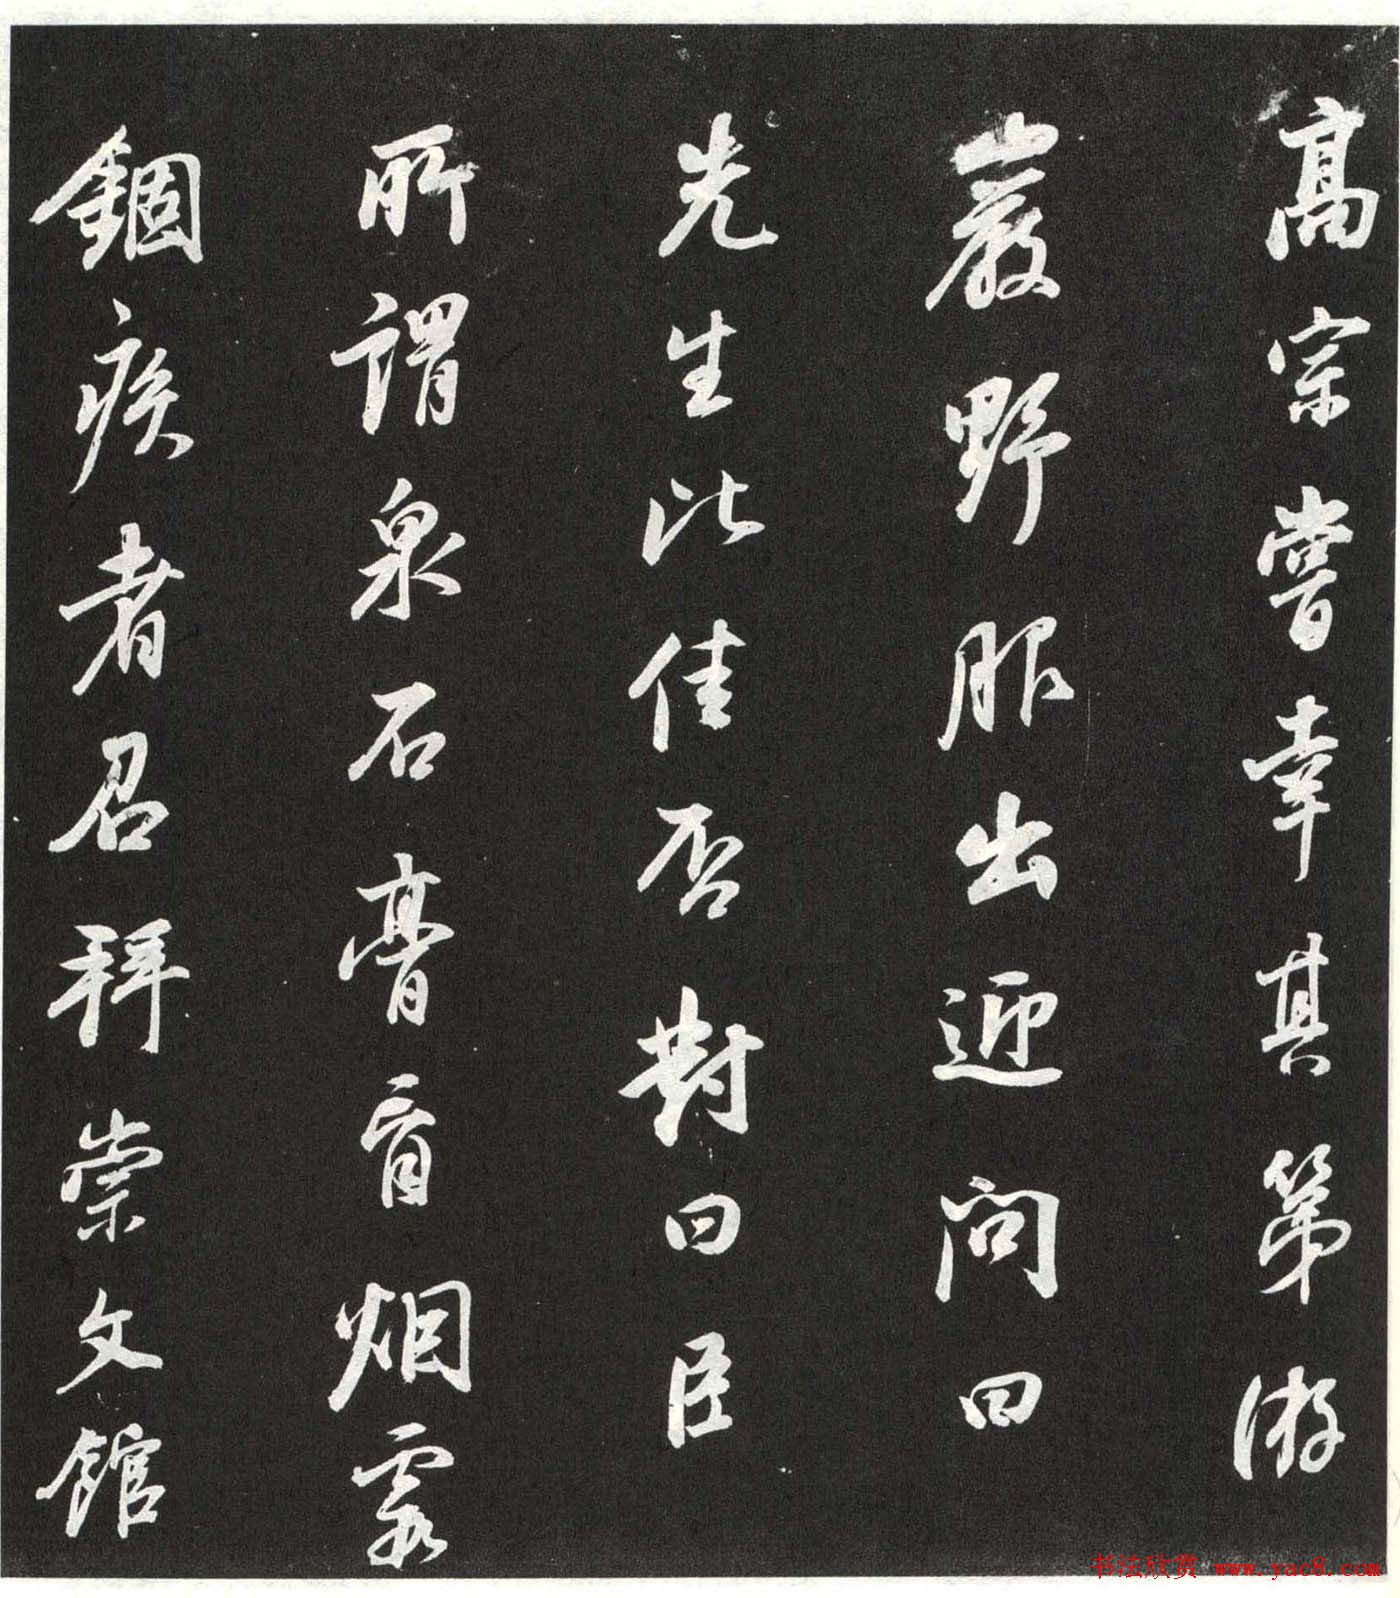 高宗嘗幸其第游
巖野服出迎問曰
先生比佳否對曰臣
所謂泉石膏肓烟霞
錮疾者召拜崇文館
书法欣赏 www.yac8.com